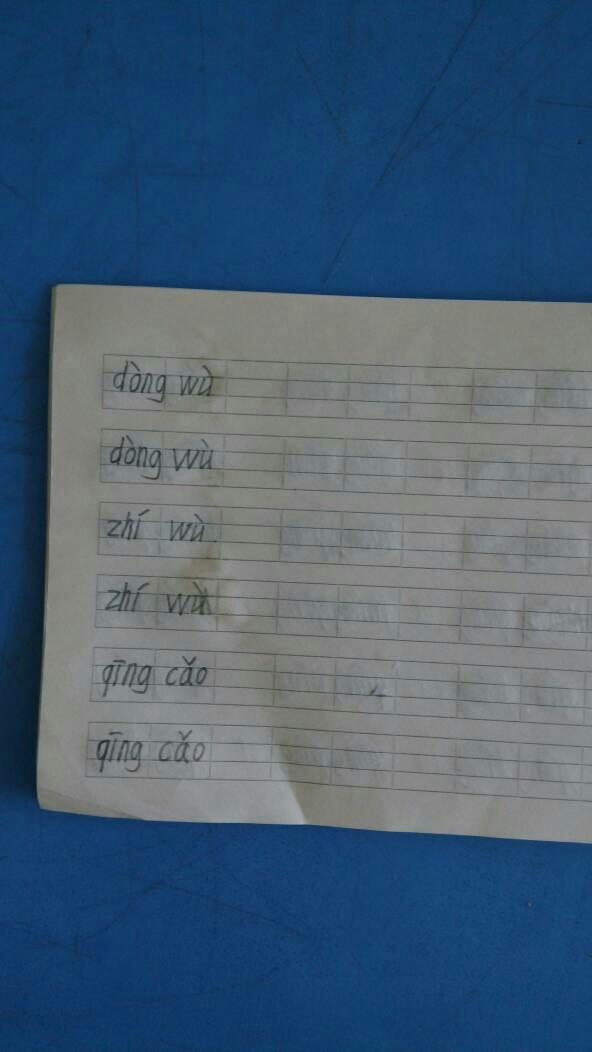 dòng wù
dòng wù
zhí wù
zhí wù
qīng cǎo
qīng cǎo